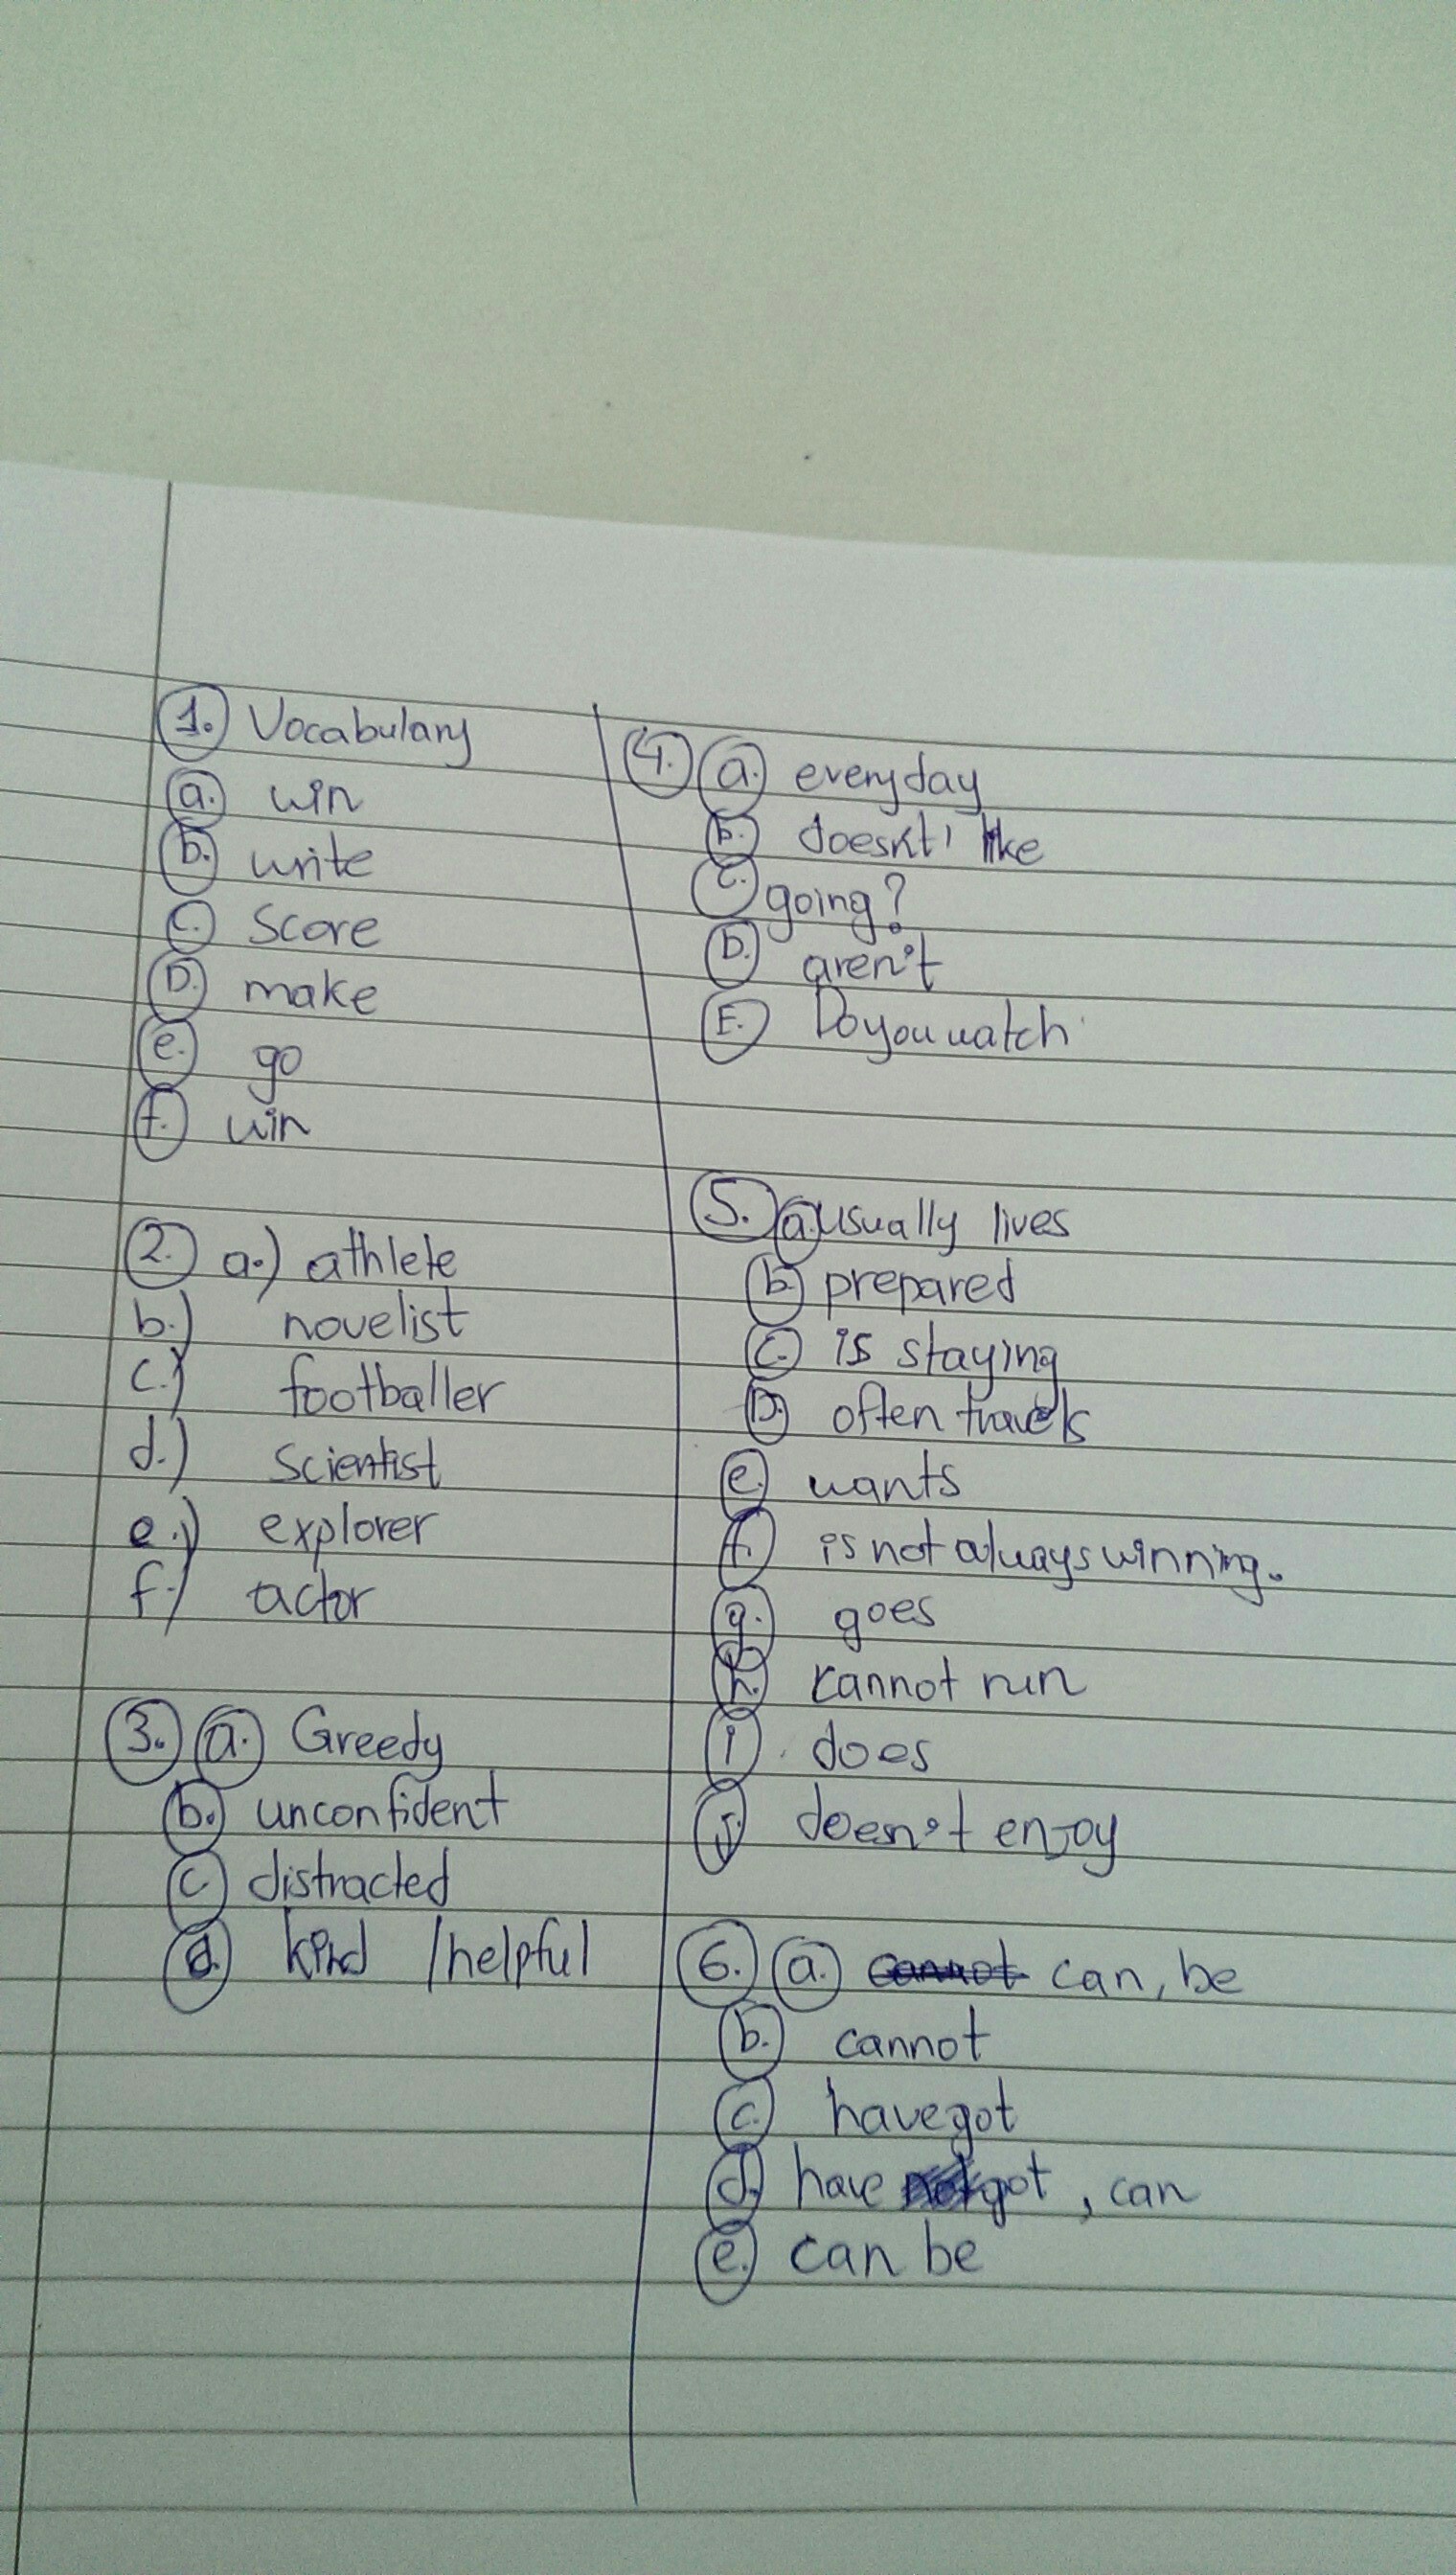 1. Vocabulary
a. win
b. write
c. score
D. make
e. go
f. win
2. a.) athlete
b.) novelist
c.) footballer
d.) scientist
e.) explorer
f.) actor
3. a. Greedy
b. unconfident
c. distracted
d. kind / helpful
4. a. everyday
b. doesnt' like
c. going?
D. aren't
E. Do you watch
5. a. usually lives
b. prepared
c. is staying
D. often travels
e. wants
f. is not always winning.
g. goes
h. cannot run
i. does
j. doen't enjoy
6. a. cannot can, be
b. cannot
c. have got
d. have got, can
e. can be